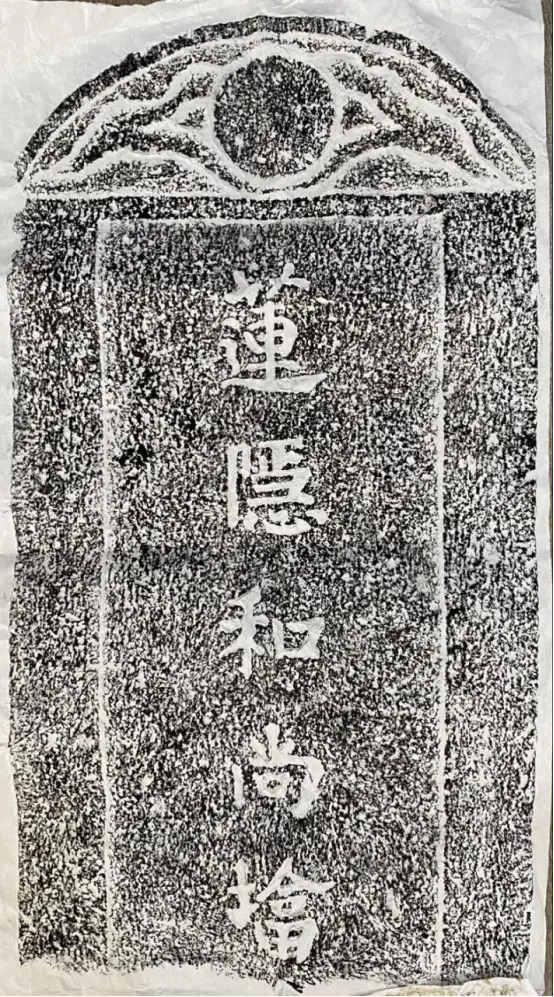 蓮隱和尚墖